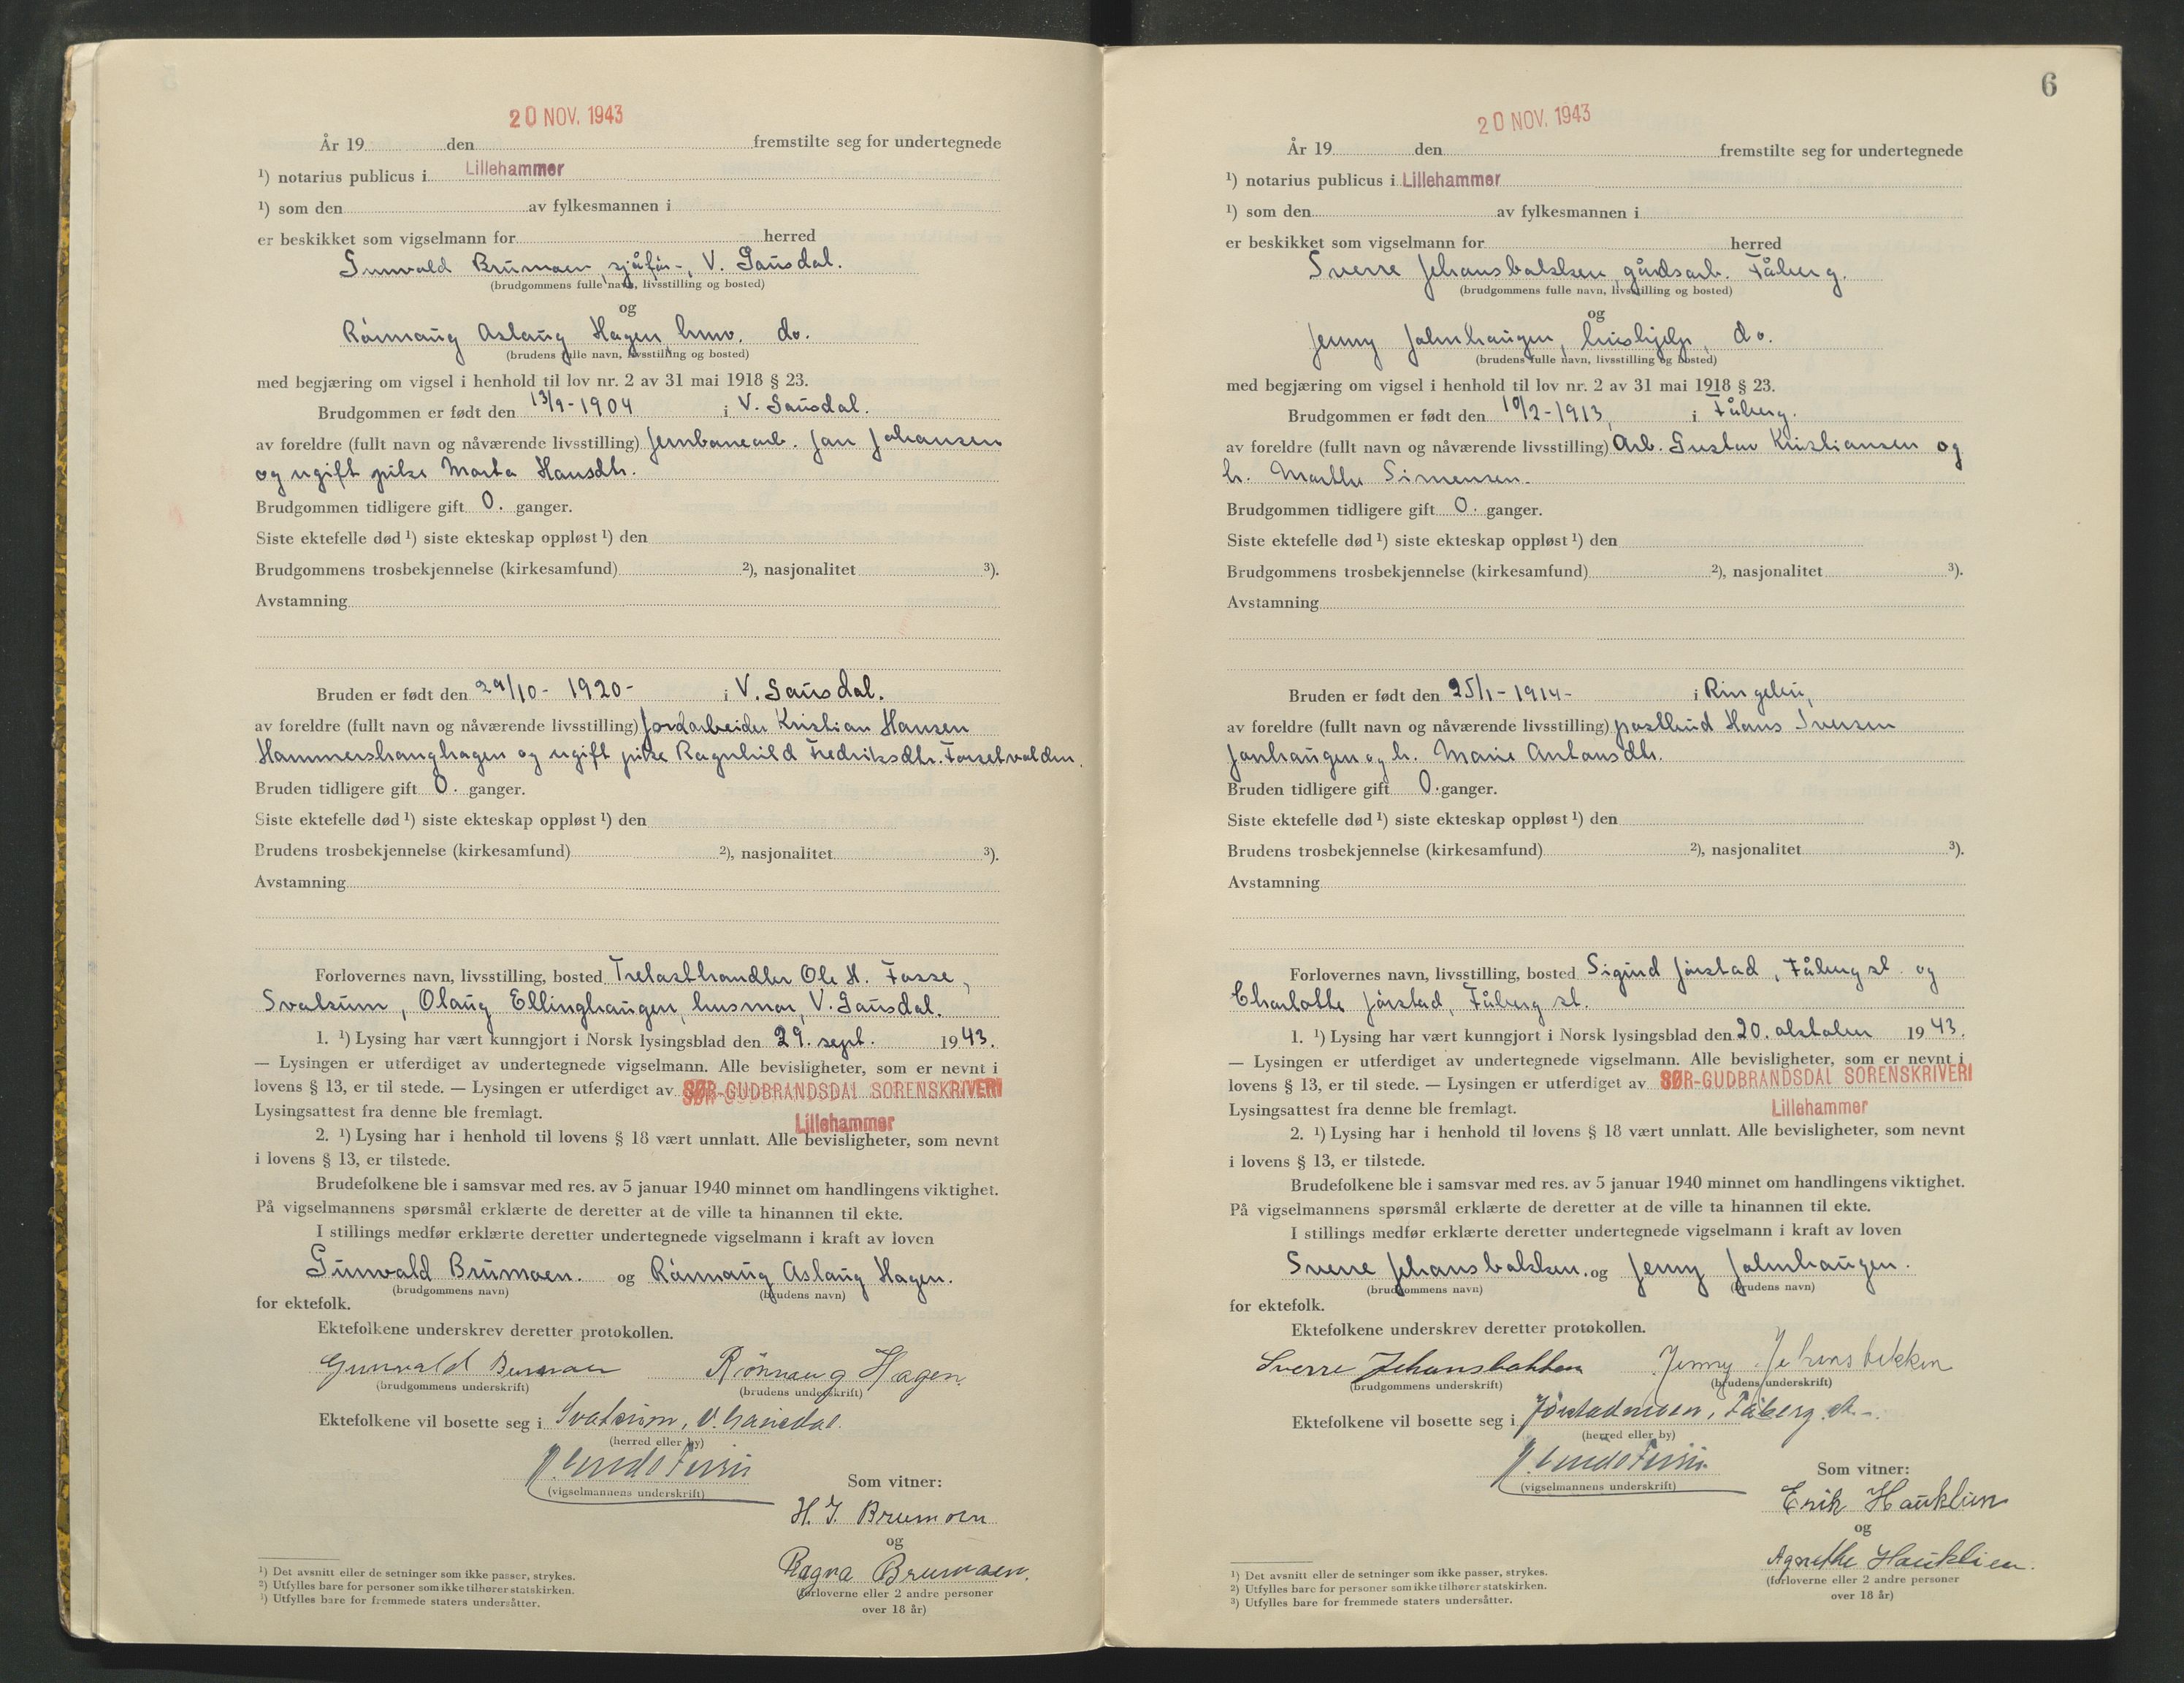 20 NOV. 1943
År 19 den fremstilte seg for undertegnede
¹) notarius publicus i Lillehammer
¹) som den av fylkesmannen i
er beskikket som vigselmann for herred
Gunvald Brumoen, sjåfør, V. Gausdal.
(brudgommens fulle navn, livsstilling og bosted)
og
Rønnaug Aslaug Hagen, do.
(brudens fulle navn, livsstilling og bosted)
med begjæring om vigsel i henhold til lov nr. 2 av 31 mai 1918 § 23.
Brudgommen er født den 13/9-1904 i V. Gausdal.
av foreldre (fullt navn og nåværende livsstilling) Jernbanearb. Jan Johansen
og ugift pike Marta Hansdtr.
Brudgommen tidligere gift 0. ganger.
Siste ektefelle død ¹) siste ekteskap oppløst ¹) den
Brudgommens trosbekjennelse (kirkesamfund) ²), nasjonalitet ³).
Avstamning
Bruden er født den 29/10- 1920- i V. Gausdal.
av foreldre (fullt navn og nåværende livsstilling) Jordarbeider Kristian Hansen
Hammershaughagen og ugift pike Ragnhild Fredriksdtr. Forsetvolden.
Bruden tidligere gift 0. ganger.
Siste ektefelle død ¹) siste ekteskap oppløst ¹) den
Brudens trosbekjennelse (kirkesamfund) ²), nasjonalitet ³).
Avstamning
Forlovernes navn, livsstilling, bosted Trelasthandler Ole H. Fosse,
Svatsum, Olaug Ellinghaugen, husmor, V. Gausdal.
1. ¹) Lysing har vært kunngjort i Norsk lysingsblad den 29. sept. 1943.
— Lysingen er utferdiget av undertegnede vigselmann. Alle bevisligheter, som er nevnt i
lovens § 13, er til stede. — Lysingen er utferdiget av SØR-GUDBRANDSDAL SORENSKRIVERI
Lysingsattest fra denne ble fremlagt.
Lillehammer
2. ¹) Lysing har i henhold til lovens § 18 vært unnlatt. Alle bevisligheter, som nevnt
i lovens § 13, er tilstede.
Brudefolkene ble i samsvar med res. av 5 januar 1940 minnet om handlingens viktighet.
På vigselmannens spørsmål erklærte de deretter at de ville ta hinannen til ekte.
I stillings medfør erklærte deretter undertegnede vigselmann i kraft av loven
Gunvald Brumoen. og Rønnaug Aslaug Hagen.
(brudgommens navn) (brudens navn)
for ektefolk.
Ektefolkene underskrev deretter protokollen.
Gunvald Brumoen Rønnaug Hagen.
(brudgommens underskrift) (brudens underskrift)
Ektefolkene vil bosette seg i Svatsum, V. Gausdal.
(herred eller by)
(vigselmannens underskrift)
Som vitner:
H. J. Brumoen
og
Ragna Brumoen.
(forloverne eller 2 andre personer
over 18 år)
¹) Det avsnitt eller de setninger som ikke passer, strykes.
²) Utfylles bare for personer som ikke tilhører statskirken.
³) Utfylles bare for fremmede staters undersåtter.
6
20 NOV. 1943
År 19 den fremstilte seg for undertegnede
¹) notarius publicus i Lillehammer
¹) som den av fylkesmannen i
er beskikket som vigselmann for herred
Sverre Jehansbakken, gårdsarb. Fåberg.
(brudgommens fulle navn, livsstilling og bosted)
og
Jenny Jalmhaugen, hushjelp, do.
(brudens fulle navn, livsstilling og bosted)
med begjæring om vigsel i henhold til lov nr. 2 av 31 mai 1918 § 23.
Brudgommen er født den 10/2-1913, i Fåberg.
av foreldre (fullt navn og nåværende livsstilling) Arb. Gustav Kristiansen og
h. Marthe Simensen.
Brudgommen tidligere gift 0. ganger.
Siste ektefelle død ¹) siste ekteskap oppløst ¹) den
Brudgommens trosbekjennelse (kirkesamfund) ²), nasjonalitet ³).
Avstamning
Bruden er født den 25/1-1914- i Ringebu,
av foreldre (fullt navn og nåværende livsstilling) postbud Hans Iversen
Janhaugen og h. Marie Antonsdtr.
Bruden tidligere gift 0. ganger.
Siste ektefelle død ¹) siste ekteskap oppløst ¹) den
Brudens trosbekjennelse (kirkesamfund) ²), nasjonalitet ³).
Avstamning
Forlovernes navn, livsstilling, bosted Sigurd Jørstad, Fåberg st. og
Charlotte Jørstad, Fåberg st.
1. ¹) Lysing har vært kunngjort i Norsk lysingsblad den 20. oktober 1943.
— Lysingen er utferdiget av undertegnede vigselmann. Alle bevisligheter, som er nevnt i
lovens § 13, er til stede. — Lysingen er utferdiget av SØR-GUDBRANDSDAL SORENSKRIVERI
Lysingsattest fra denne ble fremlagt. Lillehammer
2. ¹) Lysing har i henhold til lovens § 18 vært unnlatt. Alle bevisligheter, som nevnt
i lovens § 13, er tilstede.
Brudefolkene ble i samsvar med res. av 5 januar 1940 minnet om handlingens viktighet.
På vigselmannens spørsmål erklærte de deretter at de ville ta hinannen til ekte.
I stillings medfør erklærte deretter undertegnede vigselmann i kraft av loven
Sverre Jehansbakken. og Jenny Jalmhaugen.
(brudgommens navn) (brudens navn)
for ektefolk.
Ektefolkene underskrev deretter protokollen.
Sverre Jehansbakken Jenny Jehansbakken
(brudgommens underskrift) (brudens underskrift)
Ektefolkene vil bosette seg i Jørstadmoen, Fåberg st.
(herred eller by)
(vigselmannens underskrift)
Som vitner:
Erik Hauklien
og
Agnethe Hauklien.
(forloverne eller 2 andre personer
over 18 år)
¹) Det avsnitt eller de setninger som ikke passer, strykes.
²) Utfylles bare for personer som ikke tilhører statskirken.
³) Utfylles bare for fremmede staters undersåtter.